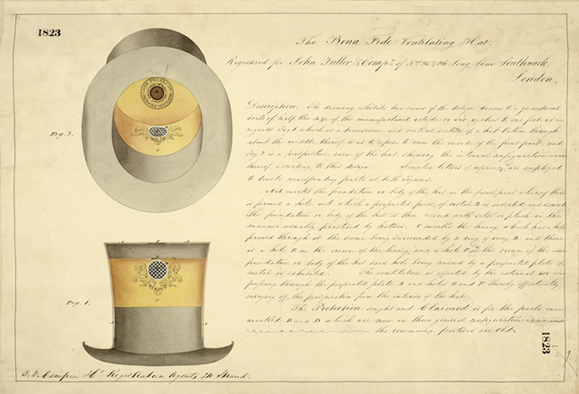 1823
The Bona Fide Ventilating Hat.
Registered for John Fuller & Compy of Nos 95 & 96 Long Lane Southwark
London.
Description. The drawing exhibits two views of the design drawn to a geometrical
scale of half the size of the manufactured article or six inches to one foot
Fig 1 which is a transverse and vertical section of a hat taken through
about the middle thereof so as to expose to view the inside of the front part and
Fig 2 is a perspective view of the hat shewing the internal
thereof according to this design. Similar letters of reference are employed
to denote corresponding parts in both Figures.
A A marks the foundation or body of the hat in the front part whereof there
is formed a hole into which a perforated piece of metal B is inserted and secured
The foundation or body of the hat is then covered with silk or plush in the
manner usually practised by hatters. C marks the lining which has a hole
formed through it the same being surrounded by a ring of
is a hole in the crown of the lining and a hole the crown of the
foundation or body of the hat said hole being covered by a perforated plate of
metal The ventilation is effected by the external air
passing through the perforated plate B and holes and thereby effectually
carrying off the perspiration from the interior of the hat.
The Protection sought and Claimed is for the parts
marked B and D which are new in their general configuration
the remaining portions are Old.
Fig. 2.
Fig. 1.
1823
Registration Agents, 214 Strand.